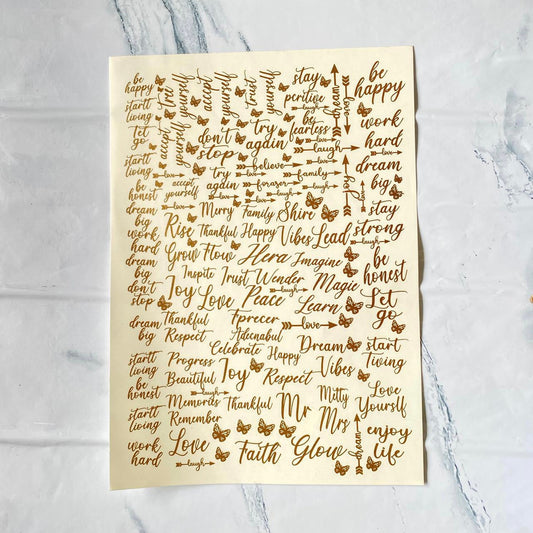 be
happy
startl
living
Let
go
startl
living
be
honest
dream
big
work
hard
dream
big
don't
stop
dream
big
startl
living
be
honest
startl
living
work
hard
accept
yourself
accept
yourself
trust
yourself
don't
stop
try
again
try
again
accept
yourself
believe
foraxer
stay
peritive
laugh
be
fearless
laugh
love
family
laugh
dream
love
be
happy
work
hard
love
dream
big
stay
strong
laugh
be
honest
Let
go
start
Tiving
Love
Yourslf
enjoy
life
Merry Family Shire
Rise Thankful Happy Vibes Lead
Grow Flow Hera Imagine
Inspite Trust Wender Magie
Joy Love Peace Learn
Thankful Tprecer love
Respect Adecnabul
Celebrate Happy Dream
Progress Joy Respect Vibes
Beautiful
laugh
Memories Thankful Mr Mitty
Remember Mrs
Love Faith Glow
laugh
dream